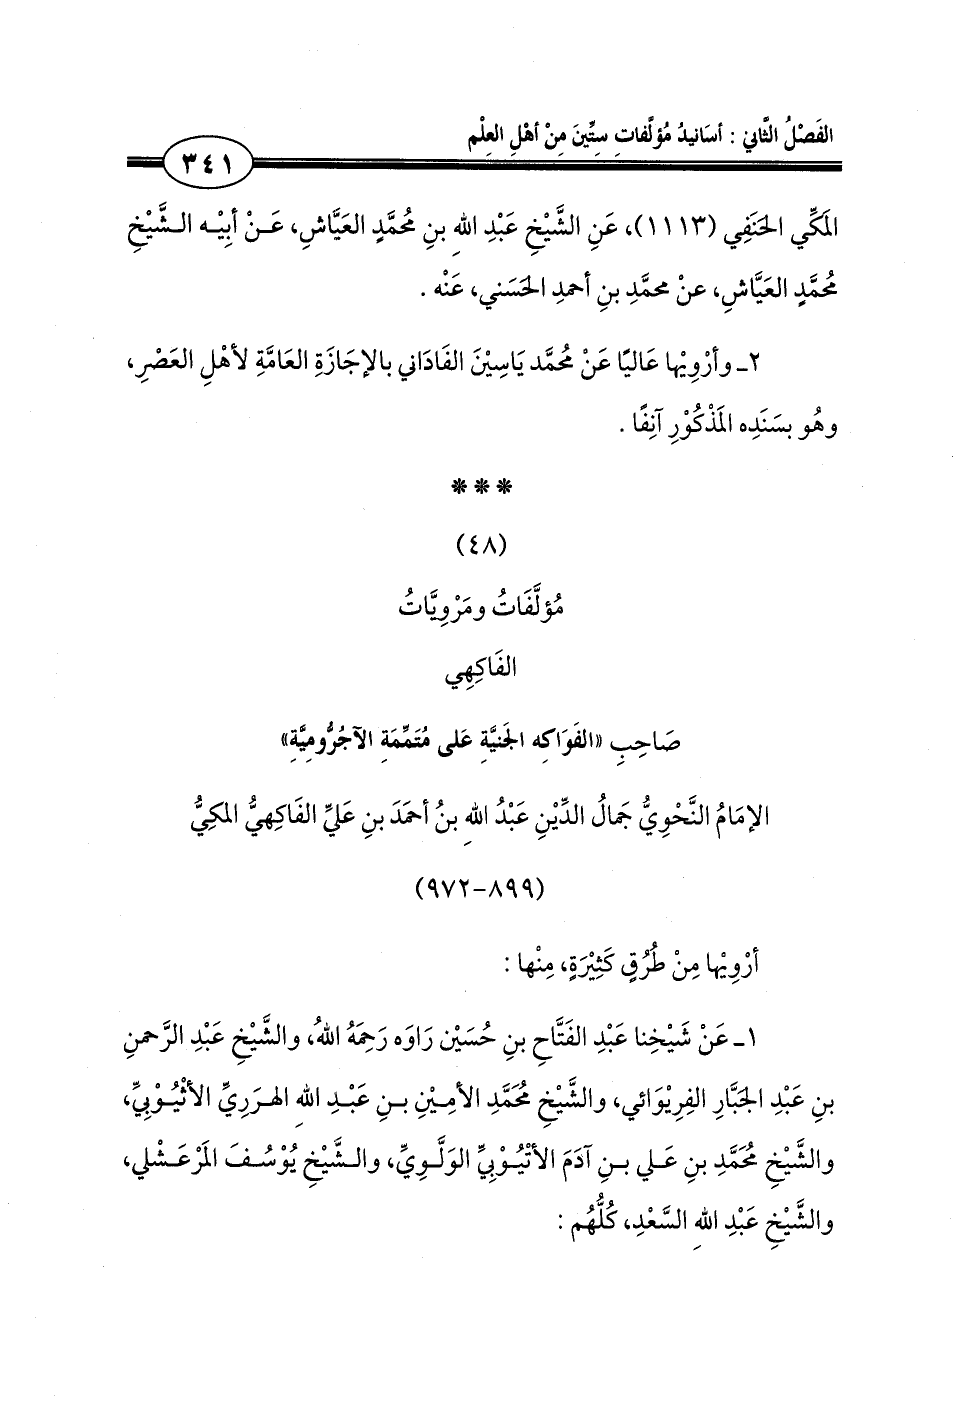 الفَصْلُ الثَّاني : أسَانيدُ مُؤلَّفاتِ ستِّينَ مِنْ أهْلِ العِلْم
٣٤١
المَكِّي الحَنَفِي (١١١٣)، عَنِ الشَّيْخِ عَبْدِ اللهِ بنِ مُحمَّدٍ العَيَّاشِ، عَـنْ أبِيْـه الـشَّيْخِ
مُحمَّدٍ العَيَّاشِ، عنْ محمَّدِ بنِ أحمدِ الحَسَني، عَنْه .
٢ـ وأرْوِيْها عَاليًا عَنْ مُحمَّد يَاسِيْنَ الفَادَاني بالإجَازَةِ العَامَّةِ لأهْلِ العَصْرِ،
وهُو بسَنَدِه المَذْكُوْرِ آنِفًا .
***
(٤٨)
مُؤلَّفَاتُ ومَرْوِيَّاتُ
الفَاكِهِي
صَاحِبِ «الفَوَاكِه الجَنيَّةِ عَلى مُتَمِّمَةِ الآجُرُّومِيَّةِ»
الإمَامُ النَّحْوِيُّ جَمالُ الدِّيْنِ عَبْدُ اللهِ بنُ أحمَدَ بنِ عَليٍّ الفَاكِهيُّ المكِيُّ
(٨٩٩-٩٧٢)
أرْوِيْها مِنْ طُرُقٍ كَثِيْرَةٍ، مِنْها :
١ـ عَنْ شَيْخِنا عَبْدِ الفَتَّاحِ بنِ حُسَيْن رَاوَه رَحِمَهُ اللهُ، والشَّيْخِ عَبْدِ الرَّحمنِ
بنِ عَبْدِ الجَبَّارِ الفِرِيْوَائي، والشَّيْخِ مُحَمَّدِ الأمِيْنِ بـنِ عَبْـدِ اللهِ الهَرَرِيِّ الأثْيُـوْبِيِّ،
والشَّيْخِ مُحَمَّدِ بنِ عَـلي بـنِ آدَمَ الأثْيُـوْبِيِّ الوَلَّـوِيِّ، والـشَّيْخِ يُوْسُـفَ المَرْعَـشْلي،
والشَّيْخِ عَبْدِ اللهِ السَّعْدِ، كُلُّهُم :